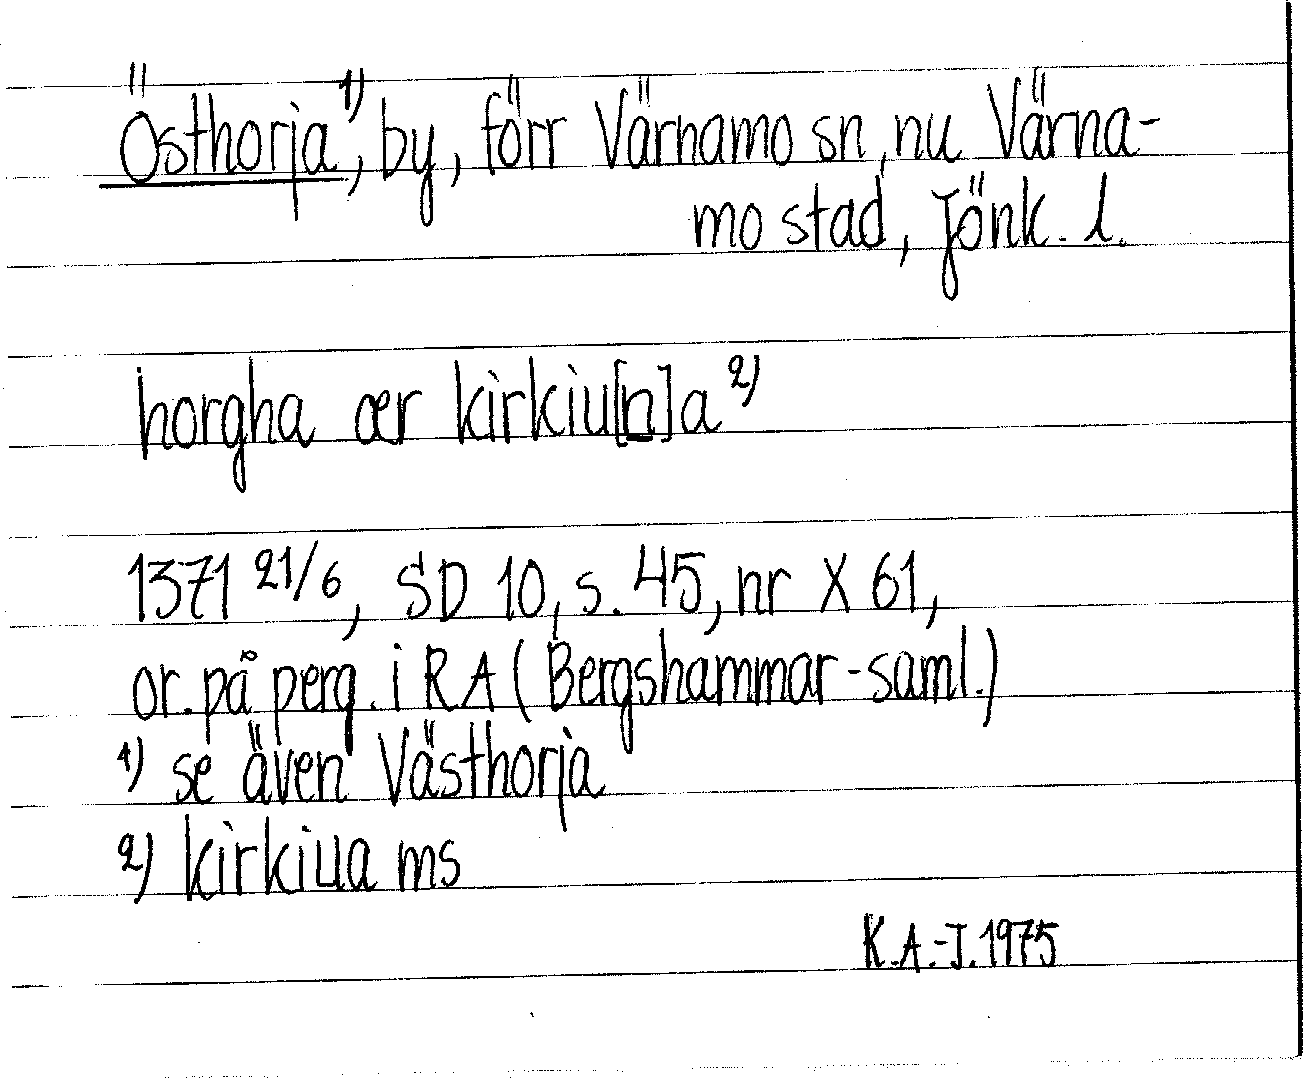 Östhorja¹⁾, by, förr Värnamo sn, nu Värna-
mo stad, Jönk. l.
horgha ær kirkiu[n]a ²⁾
1371 21/6, SD 10, s. 45, nr X 61,
or. på perg. i RA (Bergshammar-saml.)
¹⁾ se även Västhorja
²⁾ kirkiua ms
K.A.-J. 1975